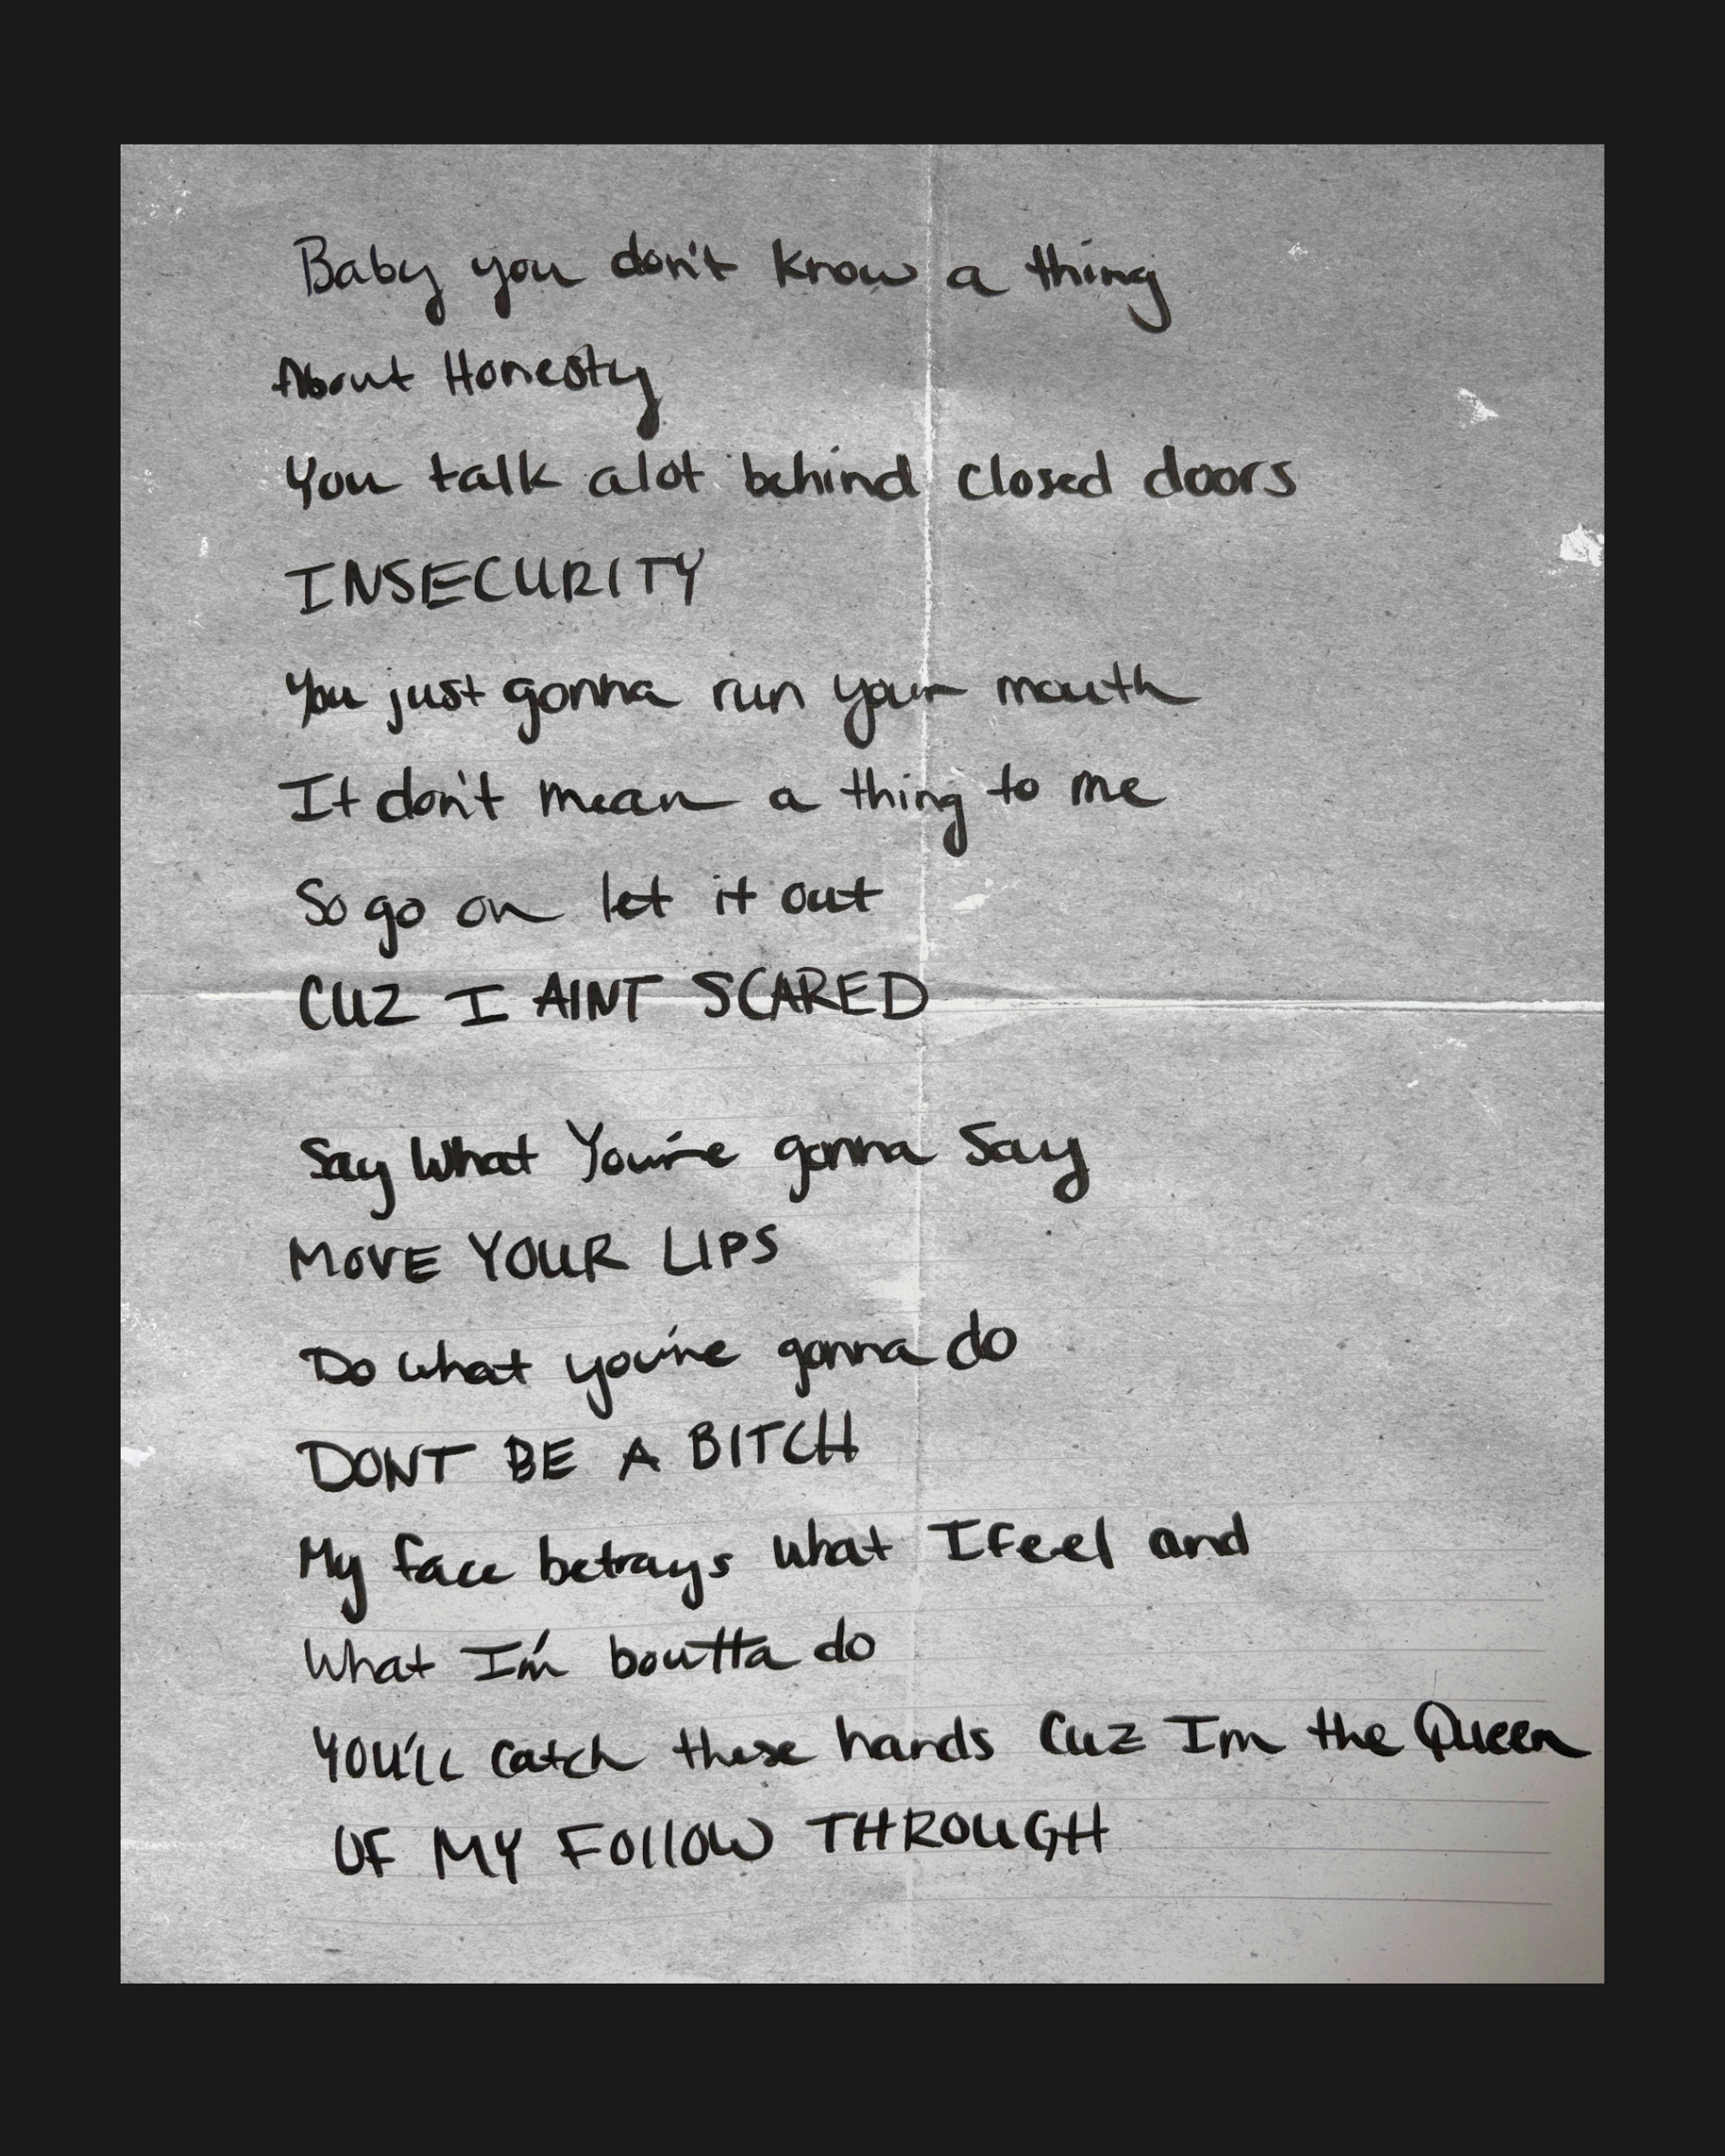 Baby you don't know a thing
About Honesty
You talk alot behind closed doors
INSECURITY
You just gonna run your mouth
It don't mean a thing to me
So go on let it out
CUZ I AINT SCARED
Say What You're gonna Say
MOVE YOUR LIPS
Do what you're gonna do
DONT BE A BITCH
My face betrays what I feel and
What I'm boutta do
YOU'LL catch these hands Cuz Im the Queen
OF MY FOllOW THROUGH